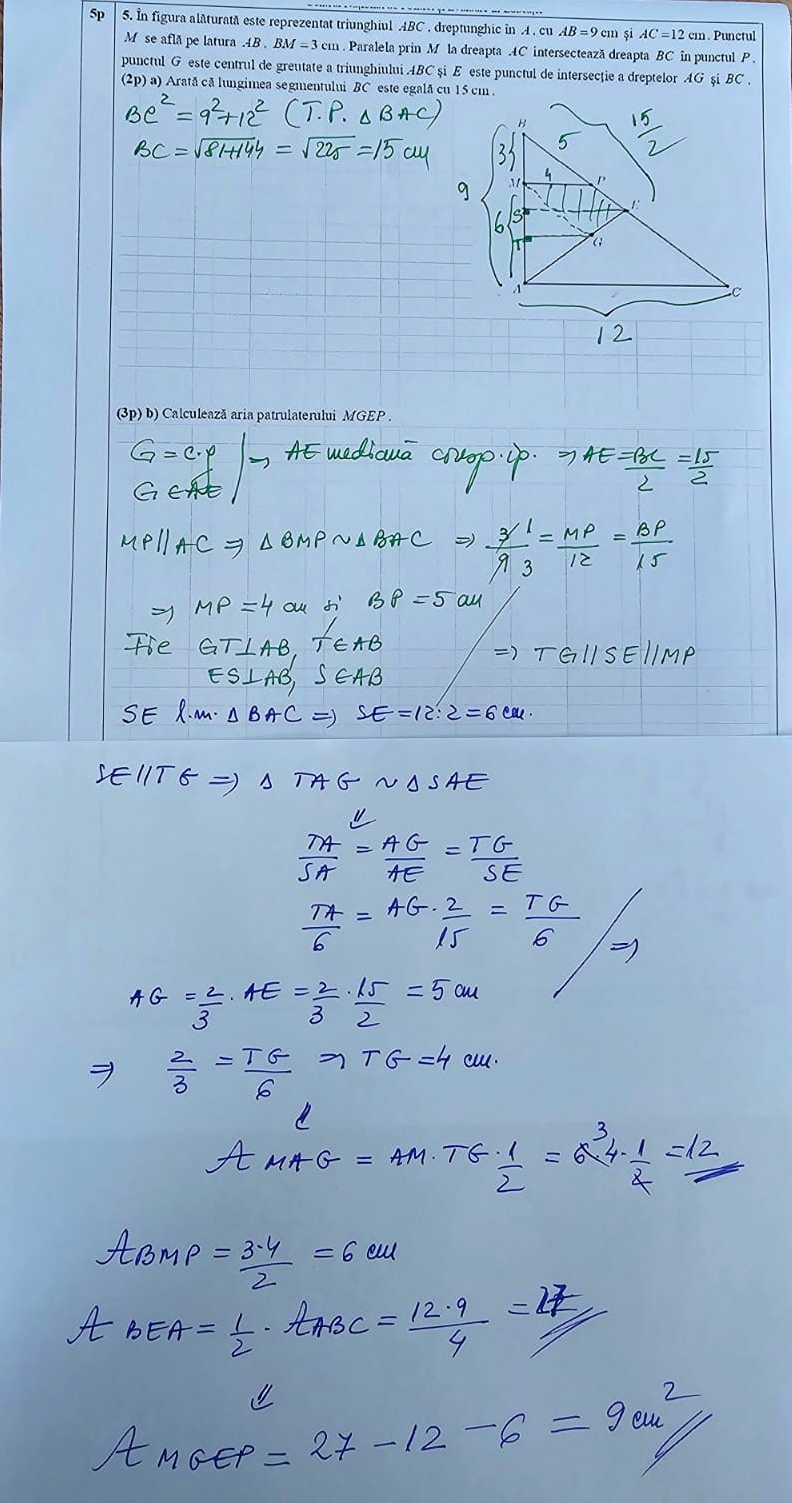 5p 5. În figura alăturată este reprezentat triunghiul ABC, dreptunghic în A, cu AB = 9 cm și AC = 12 cm. Punctul
M se află pe latura AB, BM = 3 cm. Paralela prin M la dreapta AC intersectează dreapta BC în punctul P,
punctul G este centrul de greutate a triunghiului ABC și E este punctul de intersecție a dreptelor AG și BC.
(2p) a) Arată că lungimea segmentului BC este egală cu 15 cm.
BC² = 9² + 12² (T.P. Δ BAC)
BC = √81+144 = √225 = 15 cm
B
15/2
5
3
M
4
P
9
S
E
6
T
G
A
C
12
(3p) b) Calculează aria patrulaterului MGEP.
G = c.g
G ∈ AE
⇒ AE mediană coresp. ip. ⇒ AE = BC/2 = 15/2
MP ∥ AC ⇒ Δ BMP ~ Δ BAC ⇒ 3/9 1/3 = MP/12 = BP/15
⇒ MP = 4 cm și BP = 5 cm
Fie GT⊥AB, T∈AB
ES⊥AB, S∈AB
⇒ TG // SE // MP
SE l.m. Δ BAC ⇒ SE = 12:2 = 6 cm.
SE // TG ⇒ Δ TAG ~ Δ SAE
⇓
TA/SA = AG/AE = TG/SE
TA/6 = AG · 2/15 = TG/6 ⇒
AG = 2/3 · AE = 2/3 · 15/2 = 5 cm
⇒ 2/3 = TG/6 ⇒ TG = 4 cm.
⇓
A MAG = AM · TG · 1/2 = 6 3 · 4 · 1/2 = 12
A BMP = 3·4/2 = 6 cm
A BEA = 1/2 · A ABC = 12·9/4 = 27
⇓
A MGEP = 27 – 12 – 6 = 9 cm²